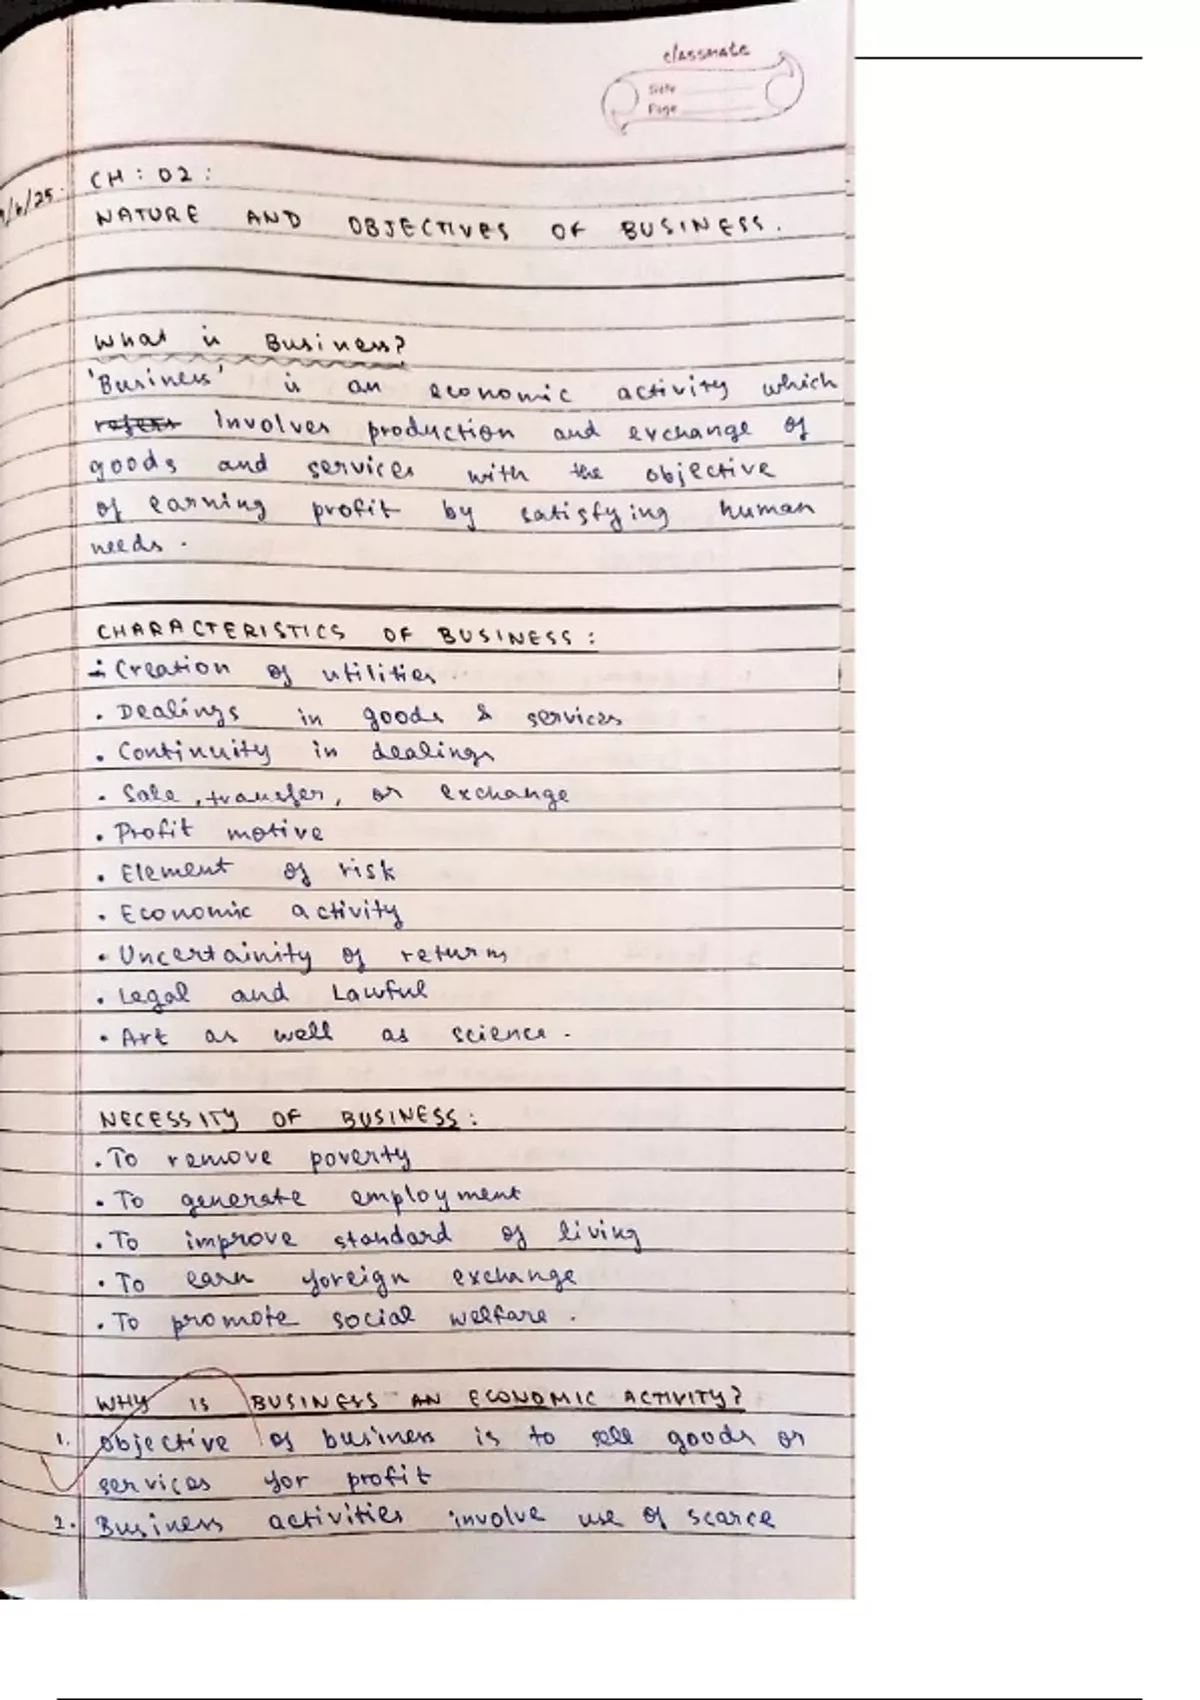 classmate
Date
Page
CH : 02 :
/6/25.
NATURE AND OBJECTIVES OF BUSINESS.
What is Business?
'Business' is an economic activity which
refers Involves production and exchange of
goods and services with the objective
of earning profit by satisfying human
needs.
CHARACTERISTICS OF BUSINESS :
- Creation of utilities
• Dealings in goods & services
• Continuity in dealings
• Sale, transfer, or exchange
• Profit motive
• Element of risk
• Economic activity
• Uncertainity of returns
• Legal and Lawful
• Art as well as science.
NECESSITY OF BUSINESS :
• To remove poverty
• To generate employment
• To improve standard of living
• To earn foreign exchange
• To promote social welfare.
WHY IS BUSINESS AN ECONOMIC ACTIVITY?
1. Objective of business is to sell goods or
services for profit
2. Business activities involve use of scarce